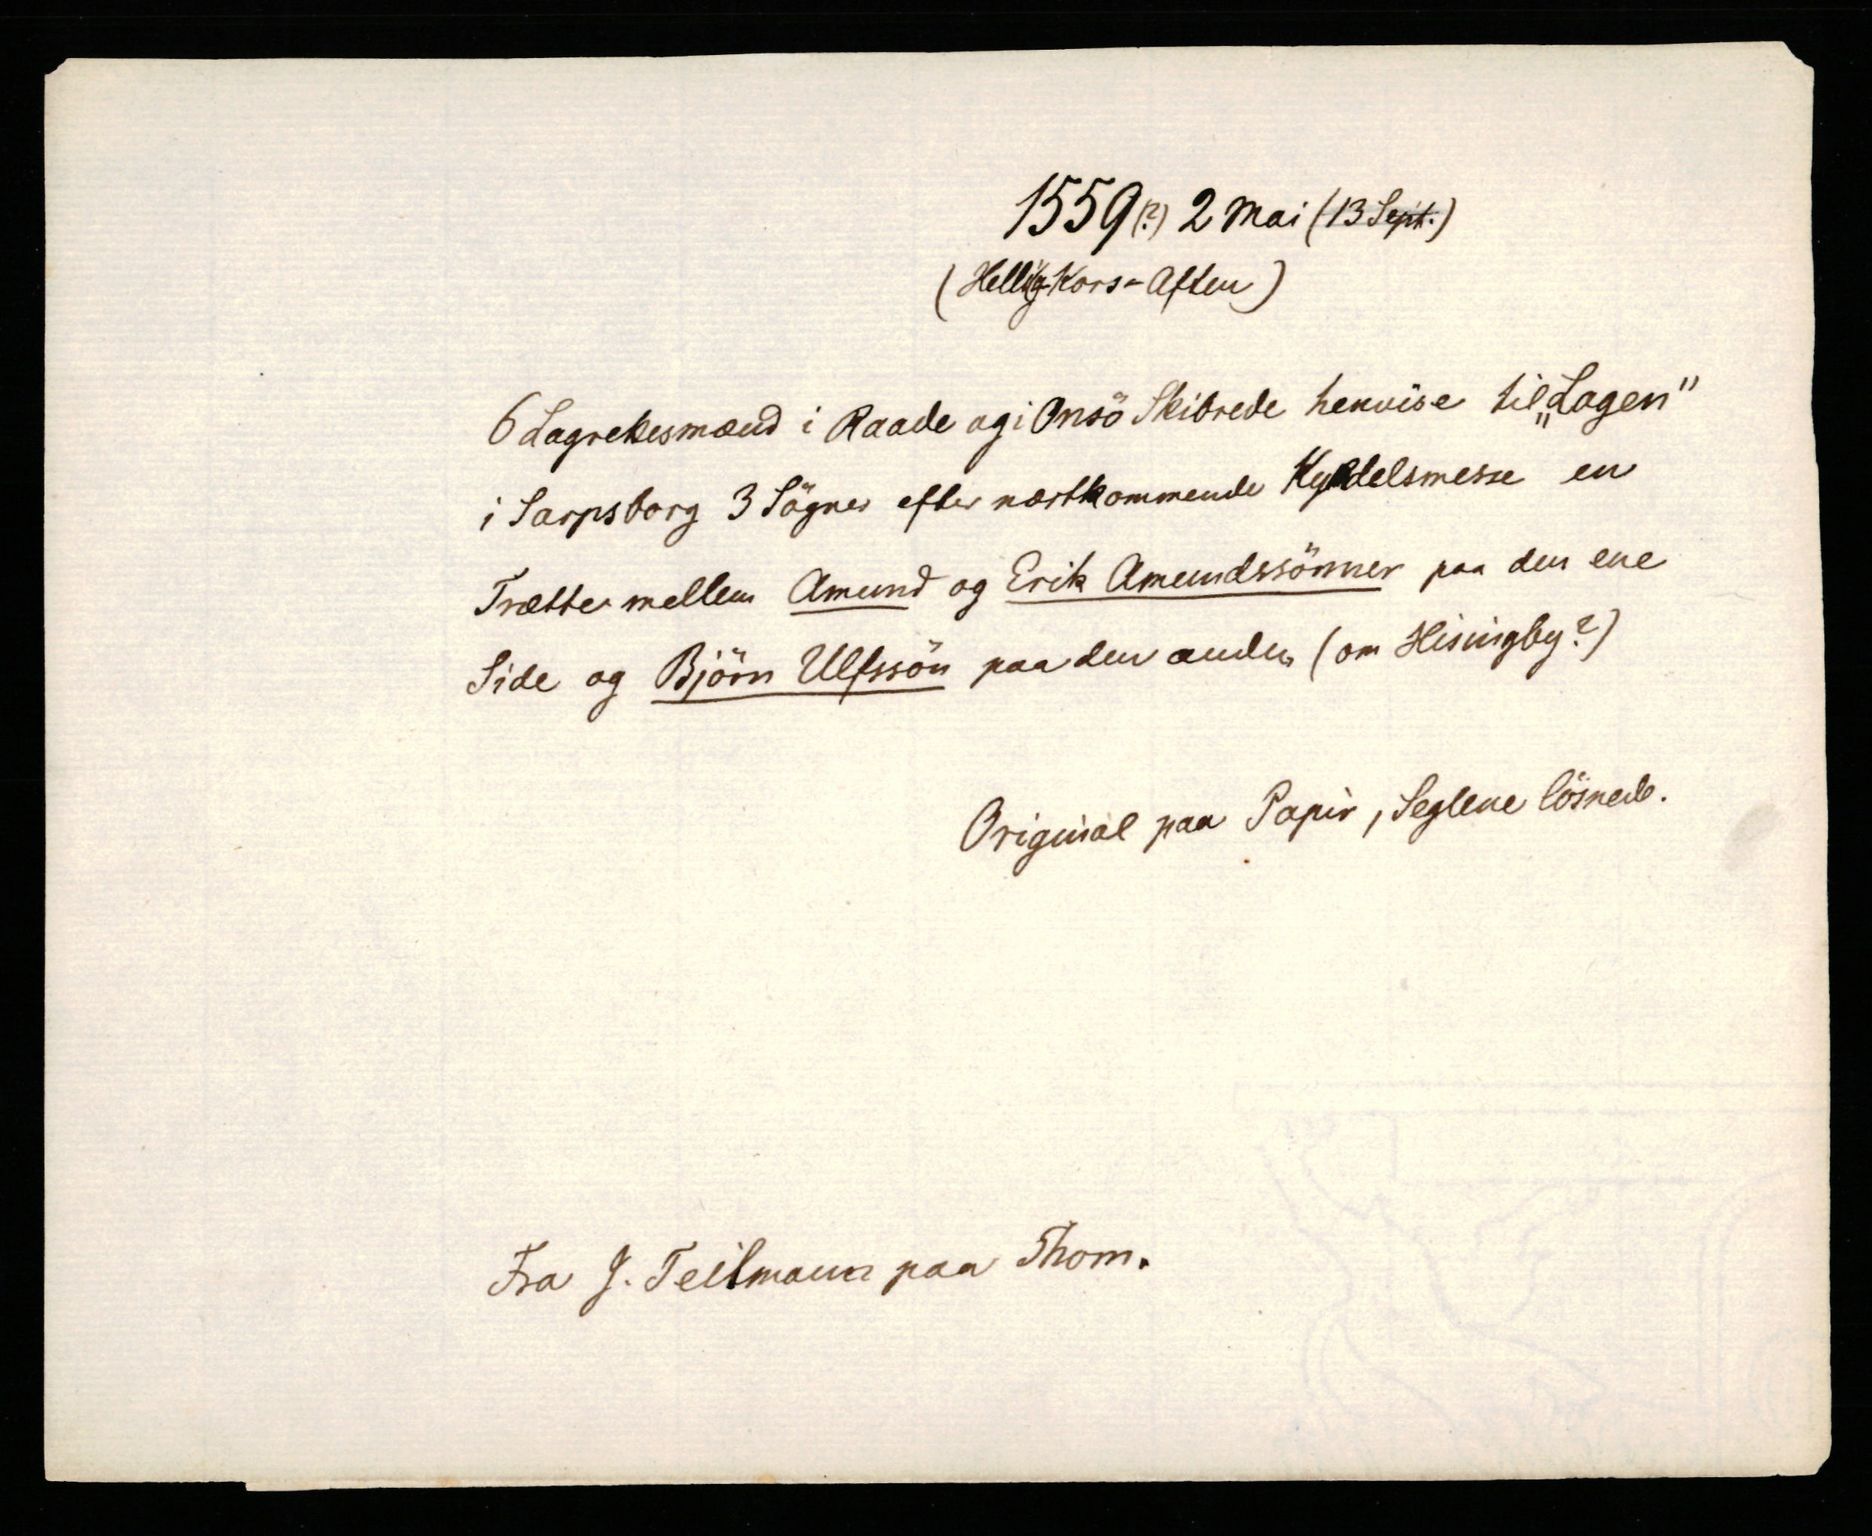 1559(?) 2 Mai (13 Sept.)
(Hellig Kors-Aften)
6 Lagrekesmænd i Raade og i Onsö Skibrede henvise til „Lagen"
i Sarpsborg 3 Sögner efter næstkommende Kyndelsmesse en
Trætte mellem Amund og Erik Amundssönner paa den ene
Side og Björn Ulfssön paa den anden (om Hisingby?)
Original paa Papir, Seglene lösnede.
Fra J. Teilmann paa Thom.